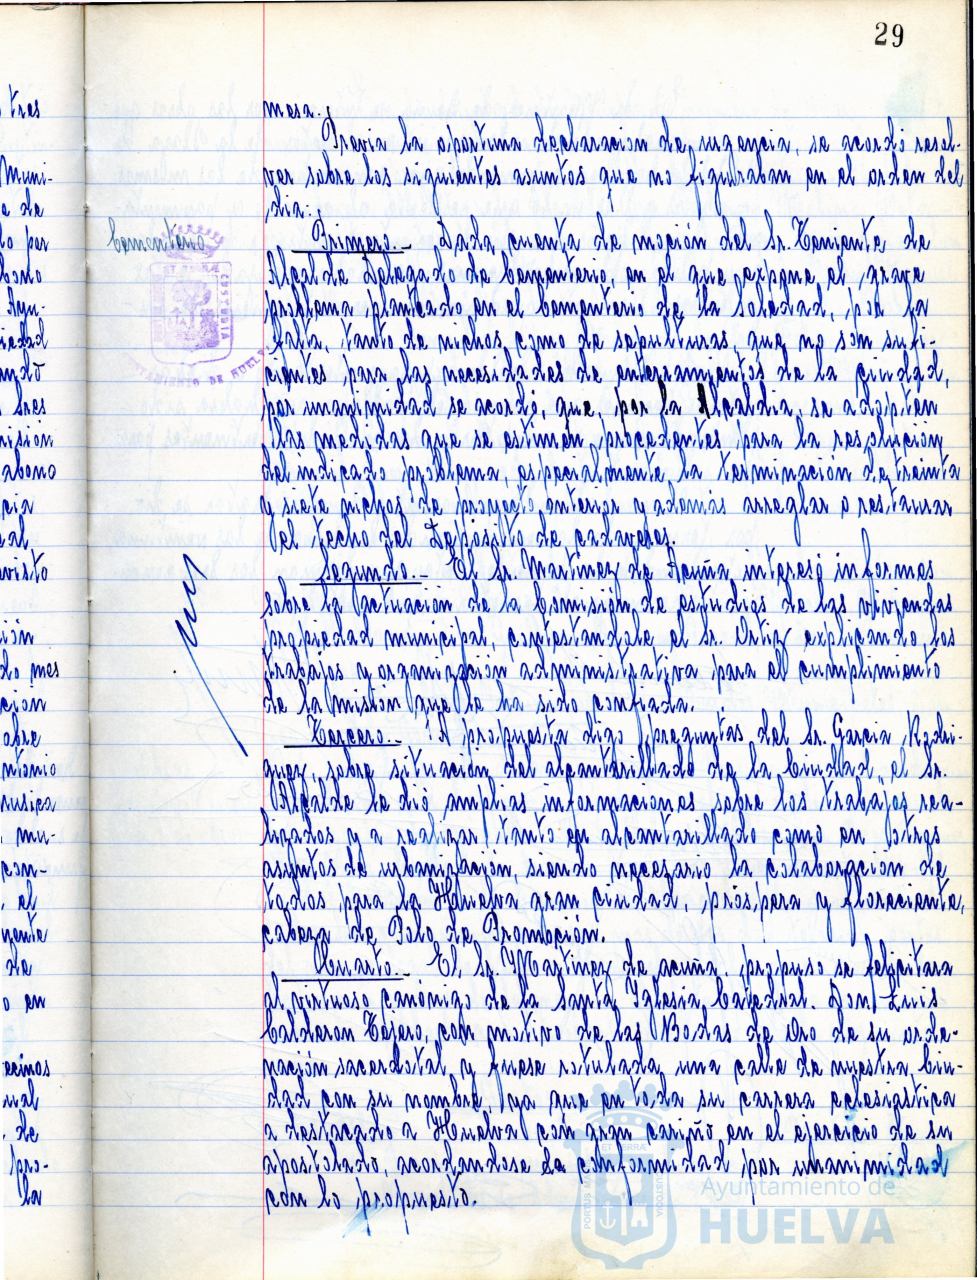 29
mosa.
Previa la oportuna declaracion de urgencia, se acordó resol-
ver sobre los siguientes asuntos que no figuraban en el orden del
dia:
Cementerio
Primero.- Dada cuenta de moción del Sr. Teniente de
Alcalde Delegado de Cementerio, en el que expone el grave
problema planteado en el Cementerio de la Soledad, por la
falta, tanto de nichos como de sepulturas, que no son sufi-
cientes para las necesidades de enterramientos de la ciudad,
por unanimidad se acordó, que, por la Alcaldia, se adopten
las medidas que se estimen procedentes para la resolución
del indicado problema, especialmente la terminación de treinta
y siete nichos de proyecto anterior y además arreglar o restaurar
el techo del Depósito de cadaveres.
Segundo.- El Sr. Martinez de Acuña interesó informes
sobre la actuación de la Comisión de estudios de las viviendas
propiedad municipal, contestandole el Sr. Ortiz explicando los
trabajos y organización administrativa para el cumplimiento
de la misión que le ha sido confiada.
Tercero.- A propuesta digo preguntas del Sr. Garcia Rodri-
guez, sobre situación del alcantarillado de la Ciudad, el Sr.
Alcalde le dió amplias informaciones sobre los trabajos rea-
lizados y a realizar tanto en alcantarillado como en otros
asuntos de urbanización, siendo necesario la colaboracion de
todos para la Huelva gran ciudad, prospera y floreciente,
cabeza de Polo de Promoción.
Cuarto.- El Sr. Martinez de acuña propuso se felicitara
al virtuoso canónigo de la Santa Iglesia Catedral. Don Luis
Calderon Tejero, con motivo de las Bodas de Oro de su orde-
nación sacerdotal y fuese rotulada una calle de nuestra Ciu-
dad con su nombre, ya que en toda su carrera eclesiastica
a destacado a Huelva con gran cariño en el ejercicio de su
apostolado, acordandose de conformidad por unanimidad
con lo propuesto.
AYUNTAMIENTO DE HUELVA
Ayuntamiento de
HUELVA
tres
Muni-
de
por
Ayun-
tres
misión
abono
cia
al
visto
ión
do mes
cion
obre
ntonio
musica
mu-
con-
el
de
o en
ecinos
de
pro-
la